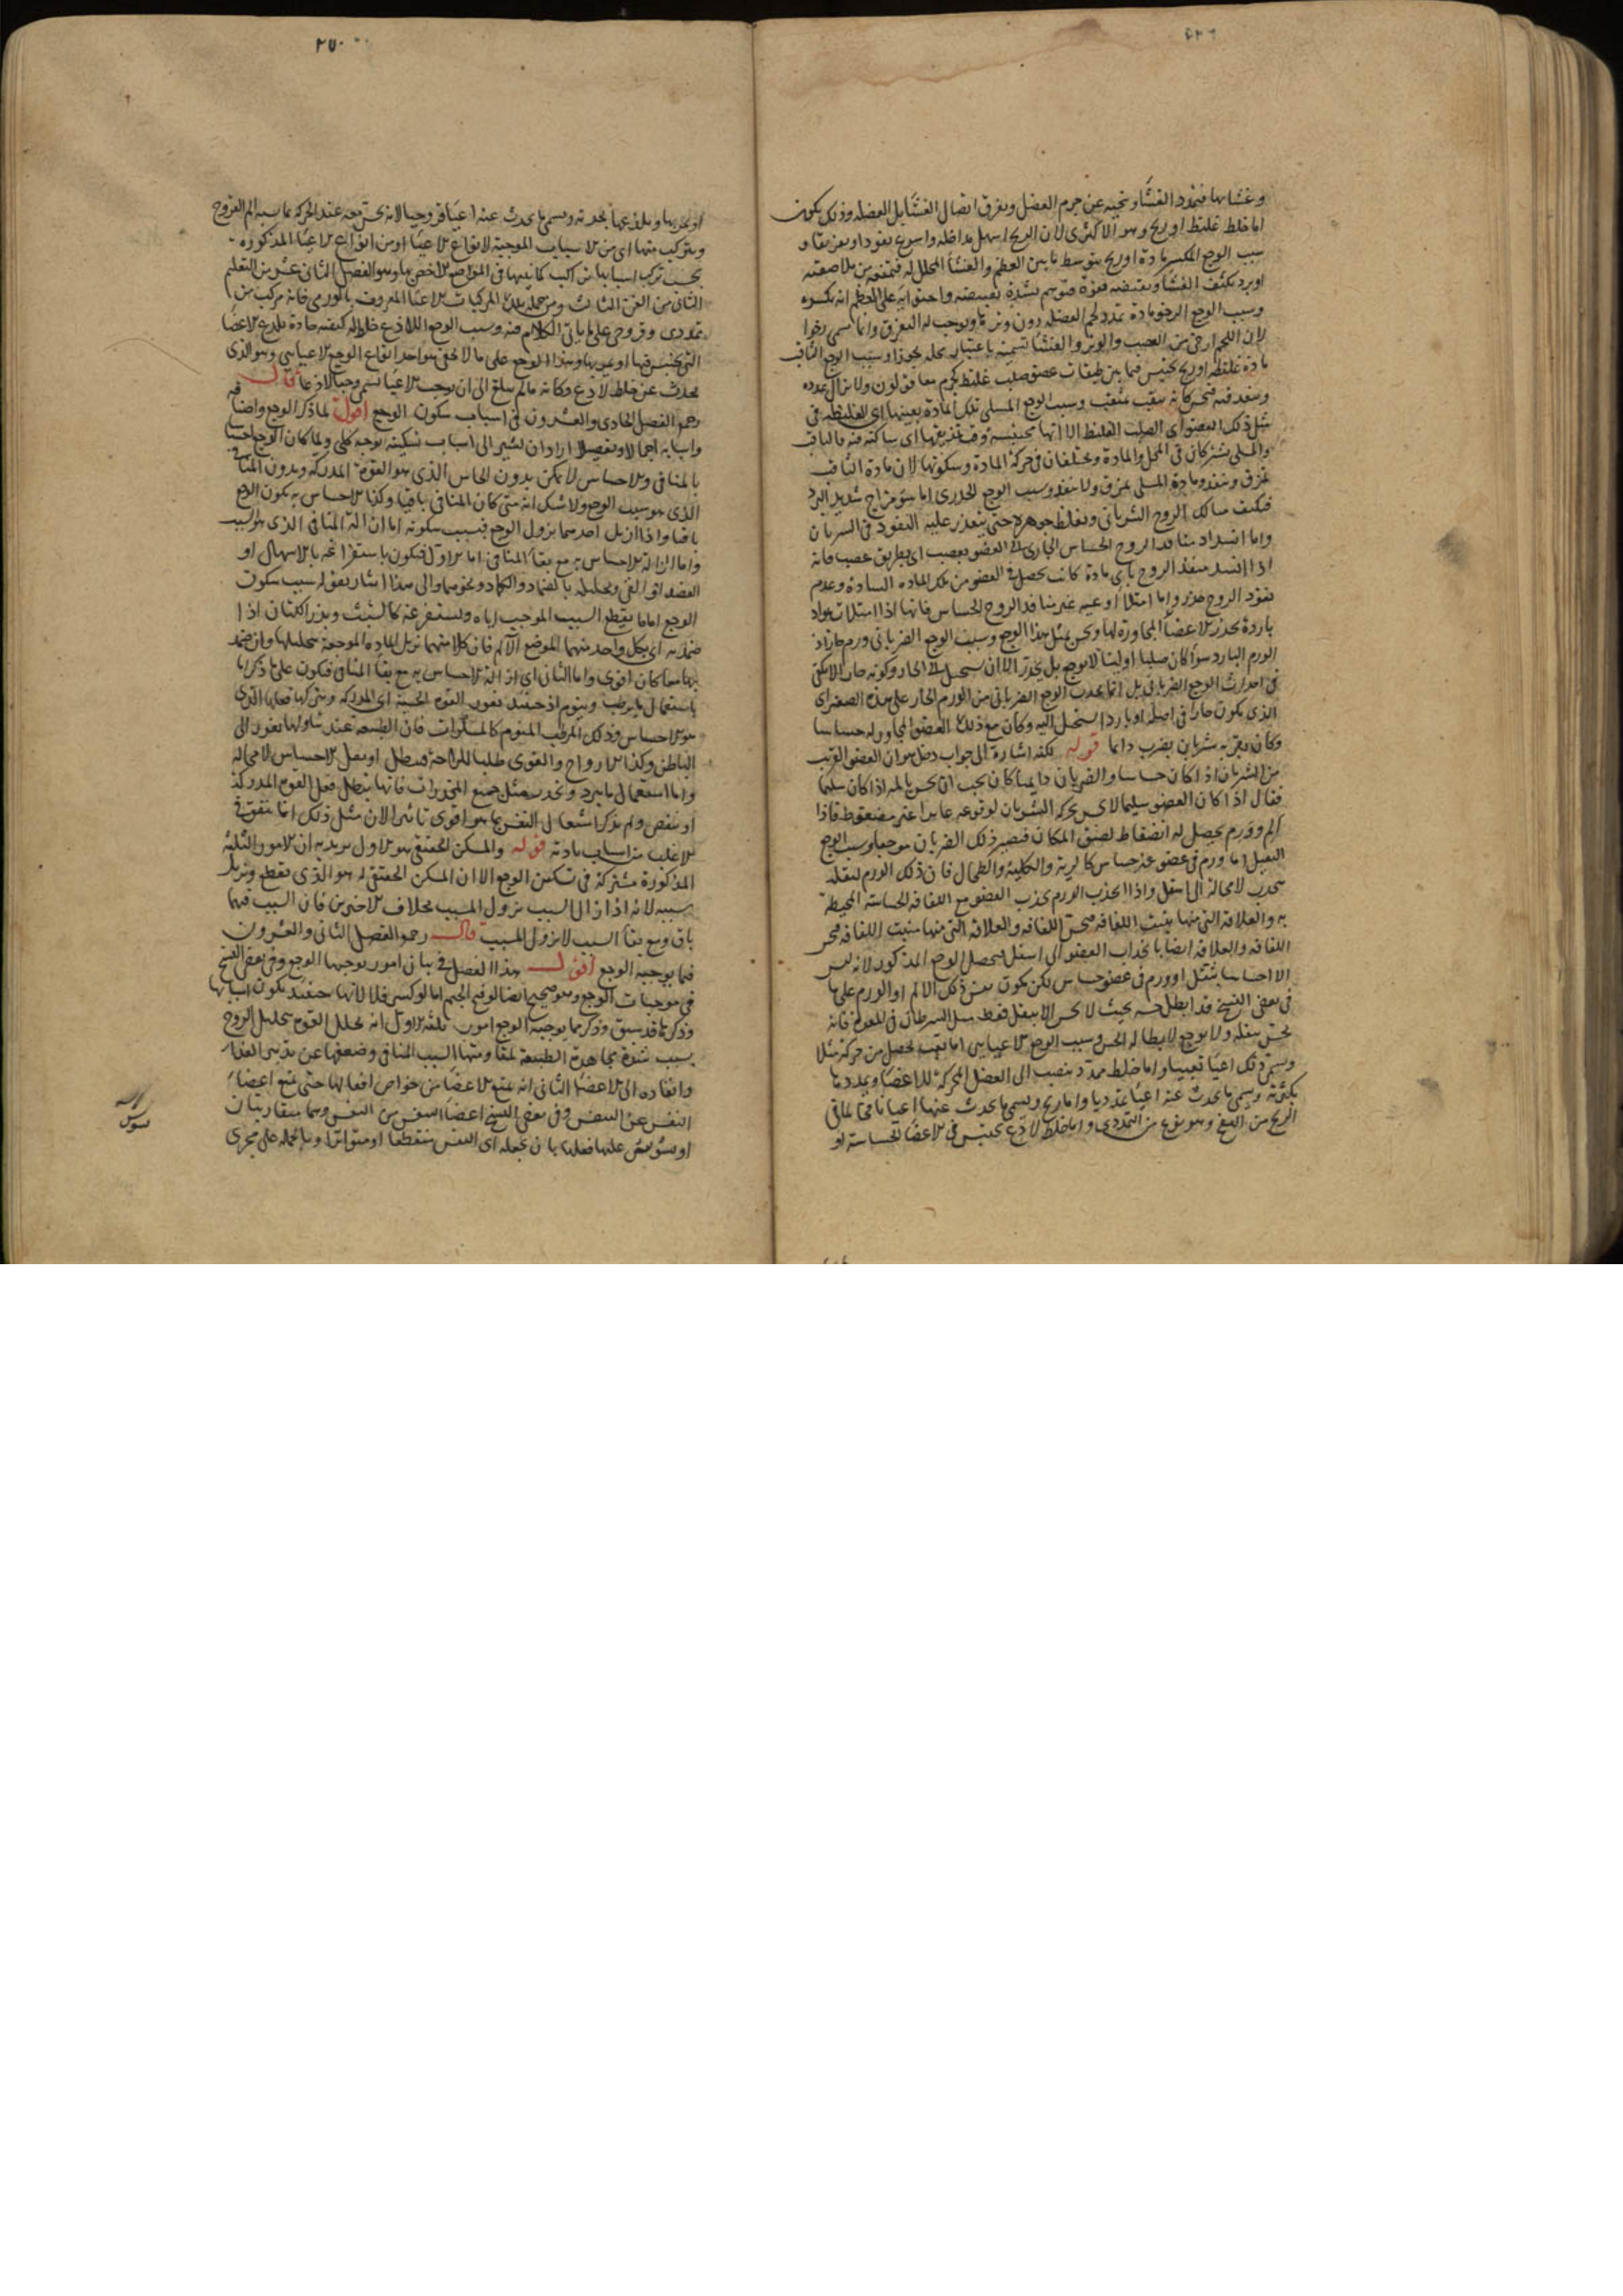 ٢٧٠
وغشائها فيمدد الغشاء وينحيه عن جرم العضل ويفرق اتصال الغشاء بل العضله وذلك يكون
اما خلط غليظ او ريح وهو الاكثرى لان الريح اسهل مداخله واسرع نفوذا وتفريقا و
سبب الوجع المكسر مادة او ريح يتوسط ما بين العظم والغشاء المجلل له فيمنعه من ملاصقته
او برد يكثف الغشاء ويقبضه بقوة
وسبب الوجع الرخو مادة تمدد لحم العضله دون وترها ويوجب له التفرق وانما سمى رخوا
لان اللحم ارخى من العصب والوتر والغشاء تسمية باعتبار محله تجوزا وسبب الوجع الثاقب
مادة غليظة او ريح تحتبس فيما بين طبقات عضو صلب غليظ كجرم معا قولون ولا يزال يمدده
وينفد فيه فيحس كانه يثقب بمثقب وسبب الوجع المسلى تلك المادة بعينها اى الغليظة فى
مثل ذلك العضو اى الصلب الغليظ الا انها محتبسة وقت تمزيقها اى ساكنة فيه فالثاقب
والمسلى يشتركان فى المحل والمادة ويختلفان فى حركة المادة وسكونها لان مادة الثاقب
تمزق وتنفد ومادة المسلى تمزق ولا تنفد وسبب الوجع الخدرى اما سوء مزاج شديد البرد
فيكثف مسالك الروح الشريانى ويغلظ جوهره حتى يتعذر عليه النفوذ فى الشريان
واما انسداد منافذ الروح الحساس الجارى الى العضو بعصب اى بطريق عصب فانه
اذا انسد منفذ الروح باى مادة كانت يحصل فى العضو من تلك المادة السادة وعدم
نفوذ الروح خدر واما امتلاء اوعيه غير منافذ الروح الحساس فانها اذا امتلات بمواد
باردة يخدر الاعضاء المجاورة لها ويحس بمثل هذا الوجع وسبب الوجع الضربانى ورم حار اذ
الورم البارد سواء كان صلبا او لينا لا يوجع بل يخدر الا ان يستحيل الى الحار وكونه حار الا يكفى
فى احداث الوجع الضربانى بل انما يحدث الوجع الضربانى من الورم الحار على هذه الصفة اى
الذى يكون حارا فى اصله او باردا يستحيل اليه وكان مع ذلك العضو المجاور له حساسا
وكان بقربه شريان يضرب دائما قوله لكنه اشارة الى جواب دخل هو ان العضو القريب
من الشريان اذا كان حساسا والضربان دايما كان يجب ان يحس بالمه اذا كان سليما
فقال اذا كان العضو سليما لا يحس بحركة الشريان لوقوعه غايرا غير مضغوط فاذا
الم وورم يحصل له انضغاط لضيق المكان فيصير ذلك الضربان موجعا وسبب الوجع
الثقيل اما ورم فى عضو غير حساس كالرية والكلية والطحال فان ذلك الورم لثقله
يجذب لا محالة الى اسفل واذا انجذب الورم يجذب العضو مع اللفافه الحساسة المحيطة
به والعلاقه التى منها ينبت اللفافه فيحس اللفافه والعلاقه التى منها منبت اللفافه فيحس
اللفافه والعلاقه ايضا بانجذاب العضو الى اسفل فيحصل الوجع المذكور لانه ليس
الا احساسا بثقل او ورم فى عضو حساس لكن يكون نفس ذلك الالم او الورم على ما
فى بعض النسخ قد ابطل حسه بحيث لا يحس الا بثقل فقط مثل السرطان فى فم المعدة فانه
يحس بثقله ولا يوجع لابطاله الحس وسبب الوجع الاعيايى اما تعب يحصل من حركة مثلا
ويسمى ذلك اعياء تعبيا واما خلط ممدد ينصب الى العضل المحركة للاعضاء ويمددها
بكثرته ويسمى ما يحدث عنه اعياء تمدديا واما ريح ويسمى ما يحدث عنها اعيا نافخا لما فى
الريح من النفخ وهو نوع من التمددى واما خلط لاذع يحتبس فى الاعضاء الحساسة او
او يجرى بها ويلذعها بحدته ويسمى ما يحدث عنه اعياء قروحيا لانه يحس معه عند الحركة بما يشبه الم القروح
ويتركب منها اى من الاسباب الموجبة لانواع الاعيا او من انواع الاعياء المذكورة
بحسب تركب اسبابها تراكيب كما نبينها فى المواضع الاخص بها وهو الفصل الثانى عشر من التعليم
الثانى من الفن الثالث ومن جملة هذه المركبات الاعياء المعروف بالورمى فانه مركب من
تمددى وقروحى على ما ياتى الكلام فيه وسبب الوجع اللاذع خلط له كيفيه حادة يلذع الاعضاء
التى يحتبس فيها او يمر بها وهذا الوجع على ما لا يخفى هو احد انواع الوجع الاعيايى وهو الذى
يحدث عن خلط لاذع وكانه ما لم يبلغ الى ان يوجب الاعياء يسمى وجعا لاذعا قال
رحمه الفصل الحادى والعشرون فى اسباب سكون الوجع اقول لما ذكر الوجع واصنافه
واسبابه اجمالا وتفصيلا اراد ان يشير الى اسباب تسكينه بوجه كلى ولما كان الوجع احساسا
بالمنافى والاحساس لا يمكن بدون الحاس الذى هو القوة المدركة وبدون المنافى
الذى هو سبب الوجع ولا شك انه متى كان المنافى باقيا وكذا الاحساس به يكون الوجع
باقيا واذا ازيل احدهما يزول الوجع فسبب سكونه اما ازالة المنافى الذى هو السبب
واما ازالة الاحساس به مع بقاء المنافى اما الاول فيكون باستفراغه بالاسهال او
الفصد او القى وتحليله بالضماد والكماد ونحوهما والى هذا اشار بقوله سبب سكون
الوجع اما ما يقطع السبب الموجب اياه ويستفرغه كالشبث وبذر الكتان اذا
ضمد به اى بكل واحد منهما الموضع الآلم فان كلا منهما يزيل المادة الموجعة بتحليلها وان ضمد
بهما معا كان اقوى واما الثانى اى ازالة الاحساس به مع بقاء المنافى فيكون على ما ذكر اما
باستعمال ما يرطب وينوم اذ حينئذ تغور القوة الحسية اى المدركة ويترك فعلها الذى
هو الاحساس وذلك المرطب المنوم كالمسكرات فان الطبيعة عند تناولها تغور الى
الباطن وكذا الارواح والقوى طلبا للراحة فيبطل او يقل الاحساس لا محاله
واما استعمال ما يبرد ويخدر مثل جميع المخدرات فانها يبطل فعل القوة المدركة
او ينقص ولم يذكر اشتغال النفس بما هو اقوى تاثيرا لان مثل ذلك انما يتفق فى
الاغلب من اسباب بادية قوله والمسكن الحقيقى هو الاول يريد به ان الامور الثلثة
المذكورة مشتركة فى تسكين الوجع الا ان المسكن الحقيقى له هو الذى يقطع ويزيل
سببه لانه اذا زال السبب يزول المسبب بخلاف الاخيرين فان السبب فيهما
باق ومع بقاء السبب لا يزول المسبب قال رحمه الفصل الثانى والعشرون
فيما يوجبه الوجع اقول هذا الفصل فى بيان امور يوجبها الوجع وفى بعض النسخ
فى موجبات الوجع وهو صحيح ايضا لو فتح الجيم اما لو كسر فلا لانها حينئذ يكون اسبابها
وذكرها قد سبق وذكر مما يوجبه الوجع امور ثلثة الاول انه يحلل القوة بتحليل الروح
بسبب شدة مجاهدة الطبيعة لمقاومتها السبب المنافى وضعفها عن تدبير الغذاء
وانفاده الى الاعضاء الثانى انه يمنع الاعضاء من خواص افعالها حتى يمنع اعضاء
النفس عن التنفس وفى بعض النسخ اعضاء التنفس من النفس وهما متقاربتان
او يشوش عليها فعلها بان يجعله اى النفس منقطعا او متواترا وبالجملة على مجرى